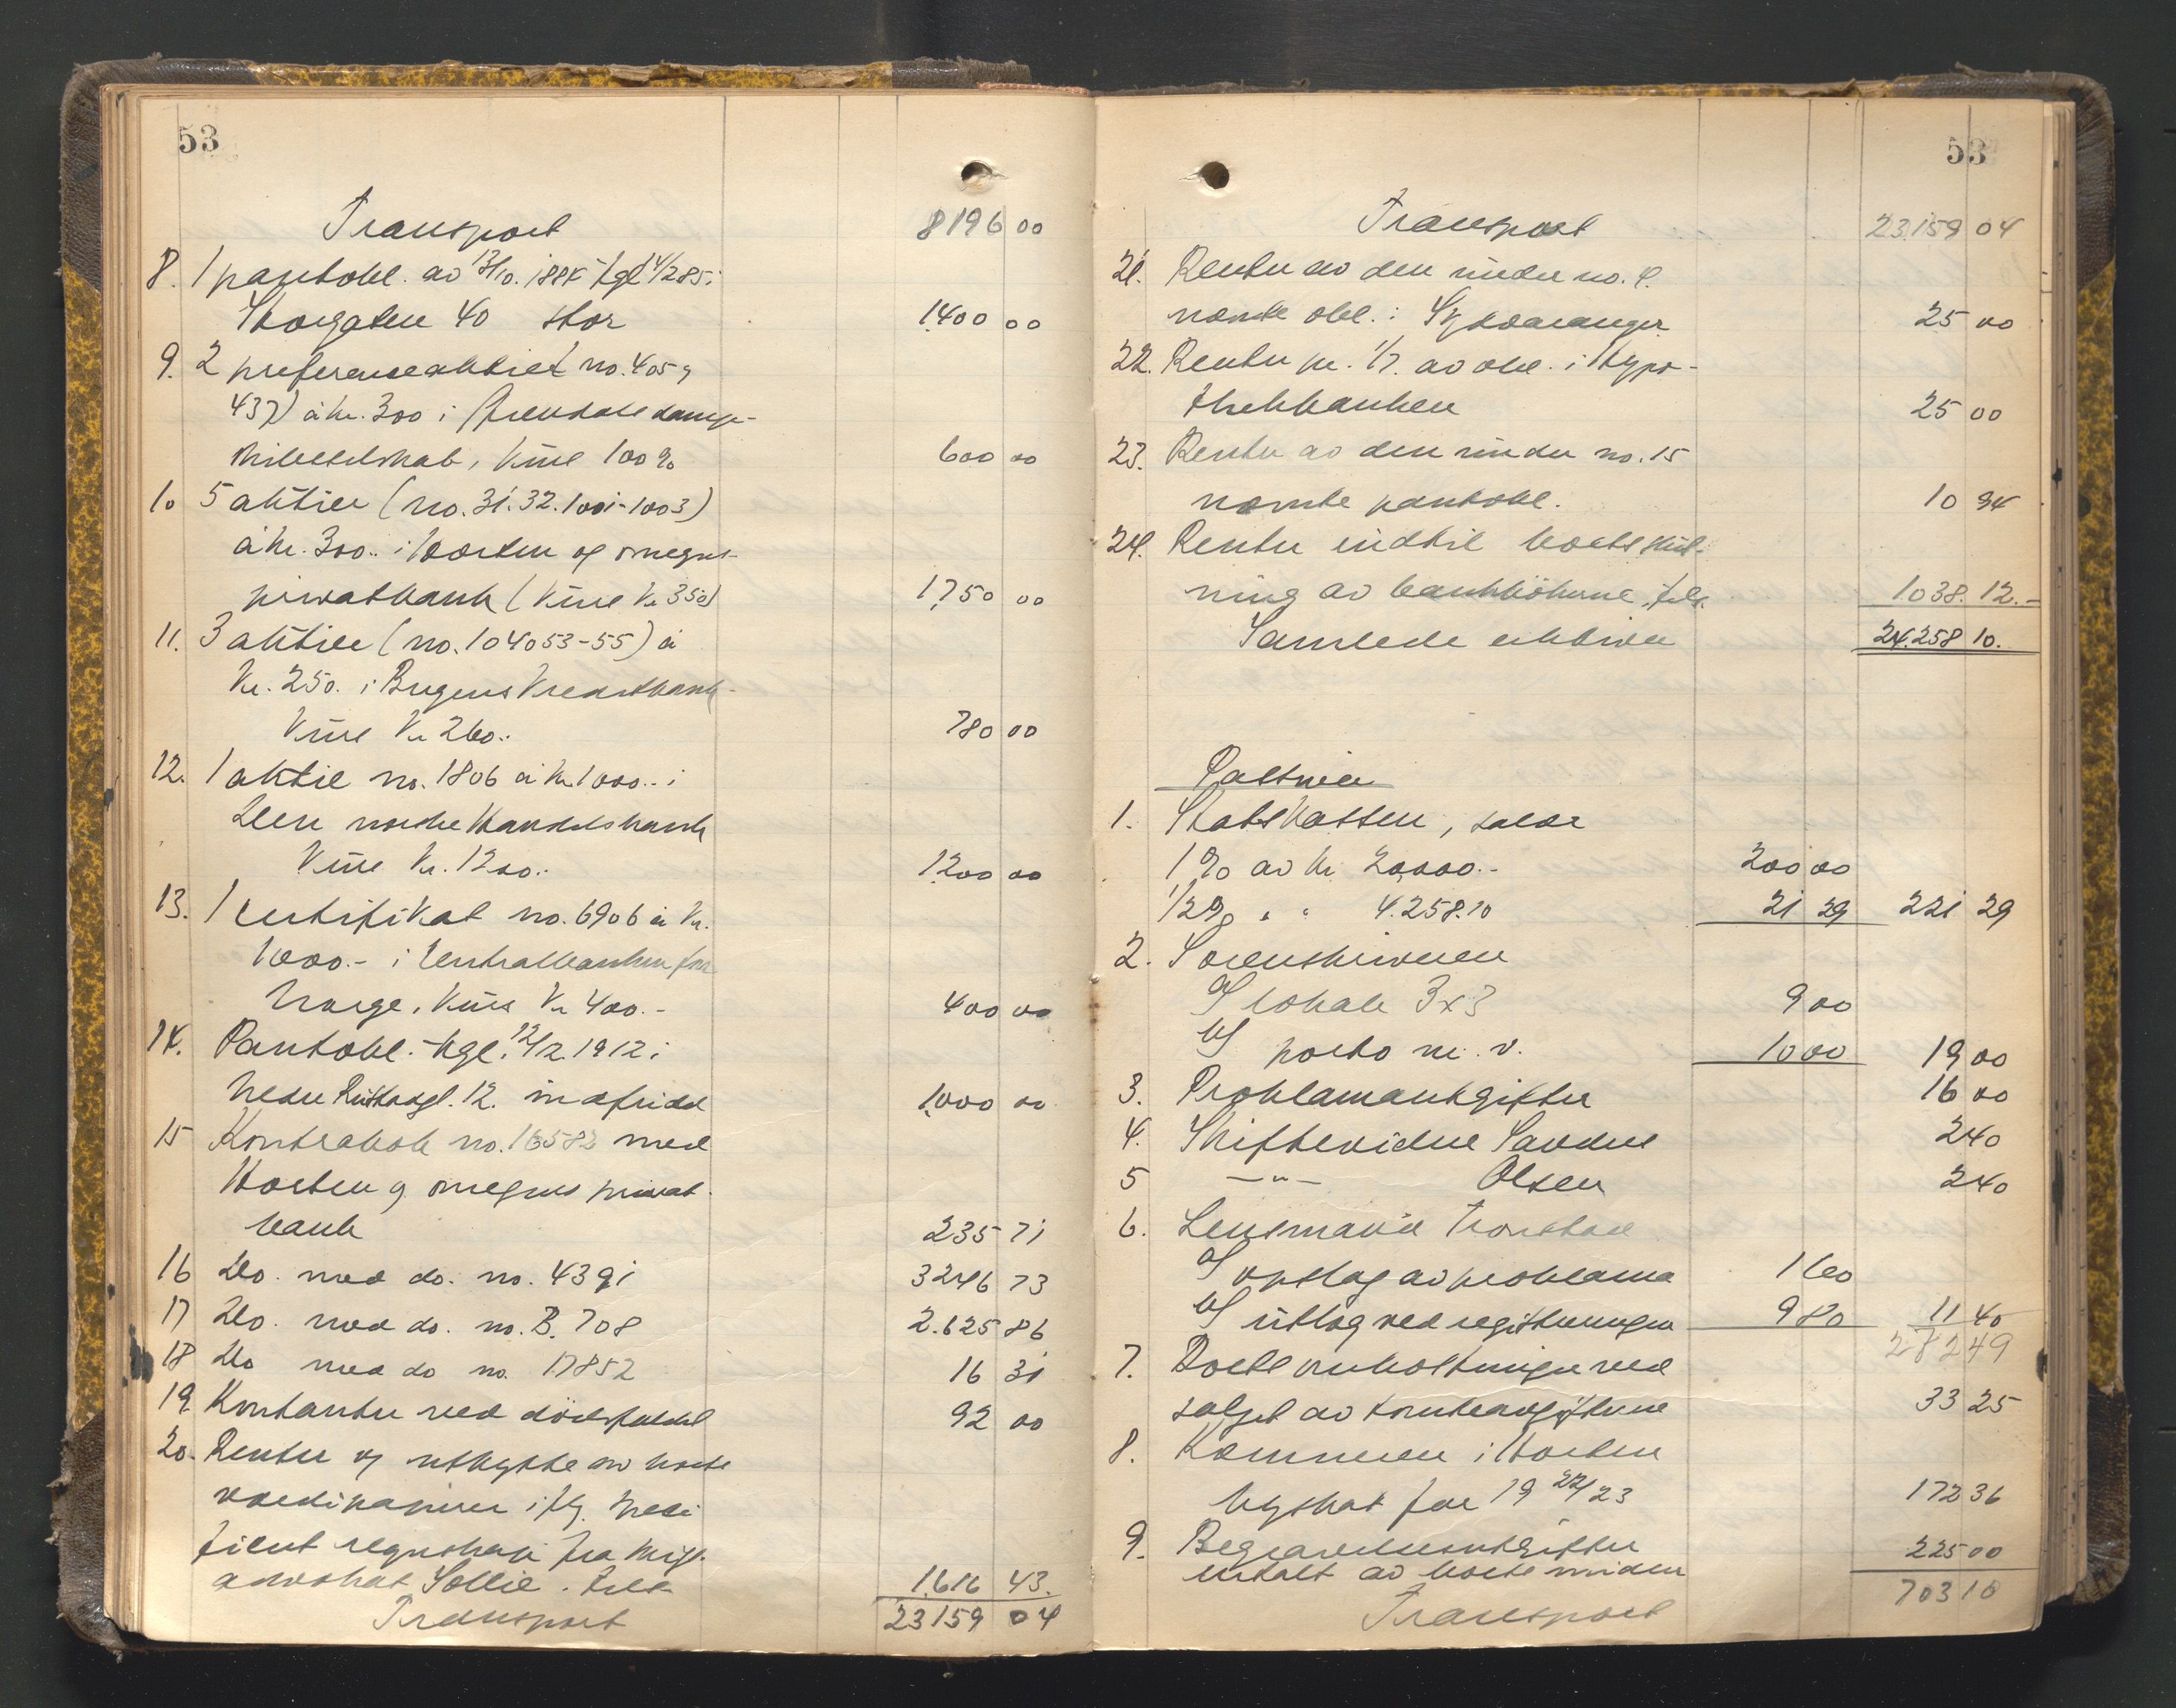 53
Transport 8196 00
8. 1 pantobl. av 13/10. 1884 tgl 14/2 85 i
Storgaten 40 stor 1400 00
9. 2 preferenceaktier no. 405 og
437) à kr. 300 i damp-
skibsselskab, Kurs 100% 600 00
10 5 aktier (no. 31. 32. 1001-1003)
à kr. 300.. i Horten og omegns
privatbank (Kurs Kr 350) 1750 00
11. 3 aktier (no. 104053-55) à
Kr. 250. i Bergens Kreditbank
Kurs Kr 260.. 780 00
12. 1 aktie no. 1806 à Kr. 1000.. i
Den norske Handelsbank
Kurs Kr. 1200.. 1200 00
13. 1 certifikat no. 6906 à Kr.
1000.- i Centralbanken for
Norge, Kurs Kr 400.- 400 00
14. Pantobl. tgl. 12/2 1912 i
Nedre 12. 1000 00
15 Kontrabok no. 16582 med
Horten og omegns privat-
bank 235 71
16 Do. med do. no. 4391 3246 73
17 Do. med do. no. B. 708 2.625 86
18 Do med do no. 17852 16 31
19. Kontanter ved dødsfaldet 92 00
20. Renter og utbytte av boets
værdipapirer ifg. spesi-
ficert regnskap fra
advokat Sollie. tils. 1.616 43.
Transport 23159 04
53
Transport 23.159 04
21. Renter av den under no. 4.
nævnte obl. i Sydvaranger 25 00
22. Renter pr. 1/7. av obl. i Hypo-
thekbanken 25 00
23. Renter av den under no. 15
nævnte pantobl. 10 94
24. Renter indtil boets slut-
ning av bankbøkerne, tils. 1038. 12.-
Samlede aktiva 24.258 10.
Passiva
1. Statskassen, salær
1 % av kr 20,000.- 200 00
1/2 % " " 4.258.10 21 29 221 29
2. Sorenskriveren
a) lokale 3x3 9 00
b) porto m. v. 10 00 19 00
3. Proklamautgifter 16 00
4. Skiftevidne 2 40
5 -"- Olsen 2 40
6. Lensmand Tronstad
a) opslag av proklama 1 60
b) utlæg ved registreringen 9 80 11 40
282 49
7. Boets omkostninger ved
salget av 33 25
8. Kommunen i Horten
byskat for 19 22/23 172 36
9. Begravelsesutgifter 225 00
betalt av boets midler
Transport 703 10